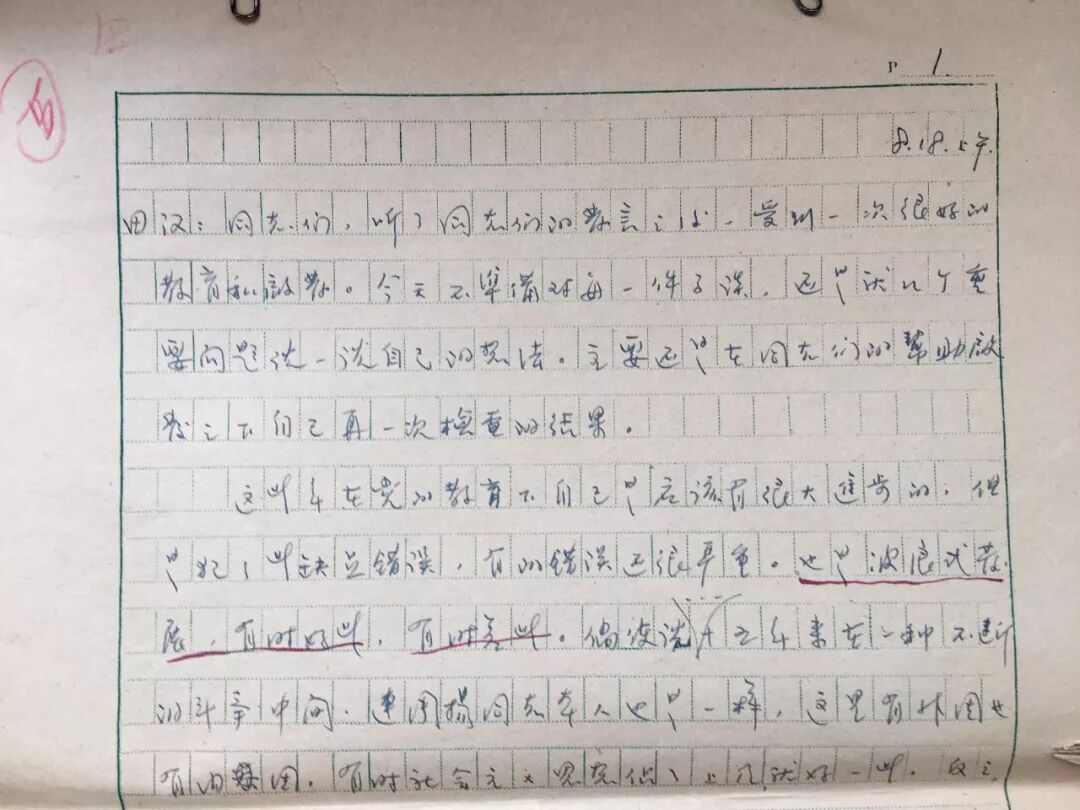 P 1.
8.18.上午.
田汉：同志们，听了同志们的发言之后，受到一次很好的
教育和启发。今天不準備对每一件事谈，还是就几个重
要问题谈一谈自己的想法。主要还是在同志们的幫助啟
发之下自己再一次检查的结果。
这些年在党的教育下自己是应该有很大進步的，但
是犯了些缺点错误，有的错误还很严重。也是波浪式发
展，有时好些，有时差些。倘使说十五年来在一种不断
的斗争中间，连周揚同志本人也是一样，这里有外因也
有内因，有时社会主义思想佔了上风就好一些，反之